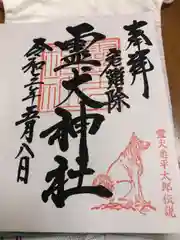 奉拝
難除
霊犬神社
令和 年 月八日
霊犬悉平太郎伝説